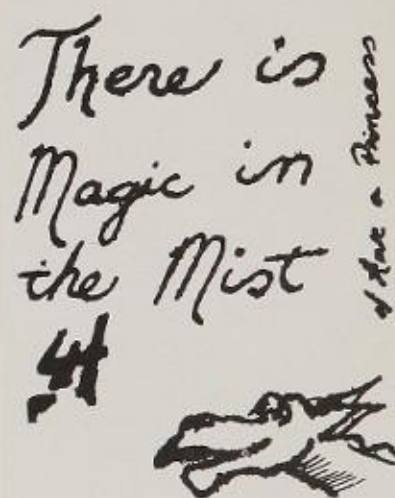 There is
Magic in
the Mist
a Princess